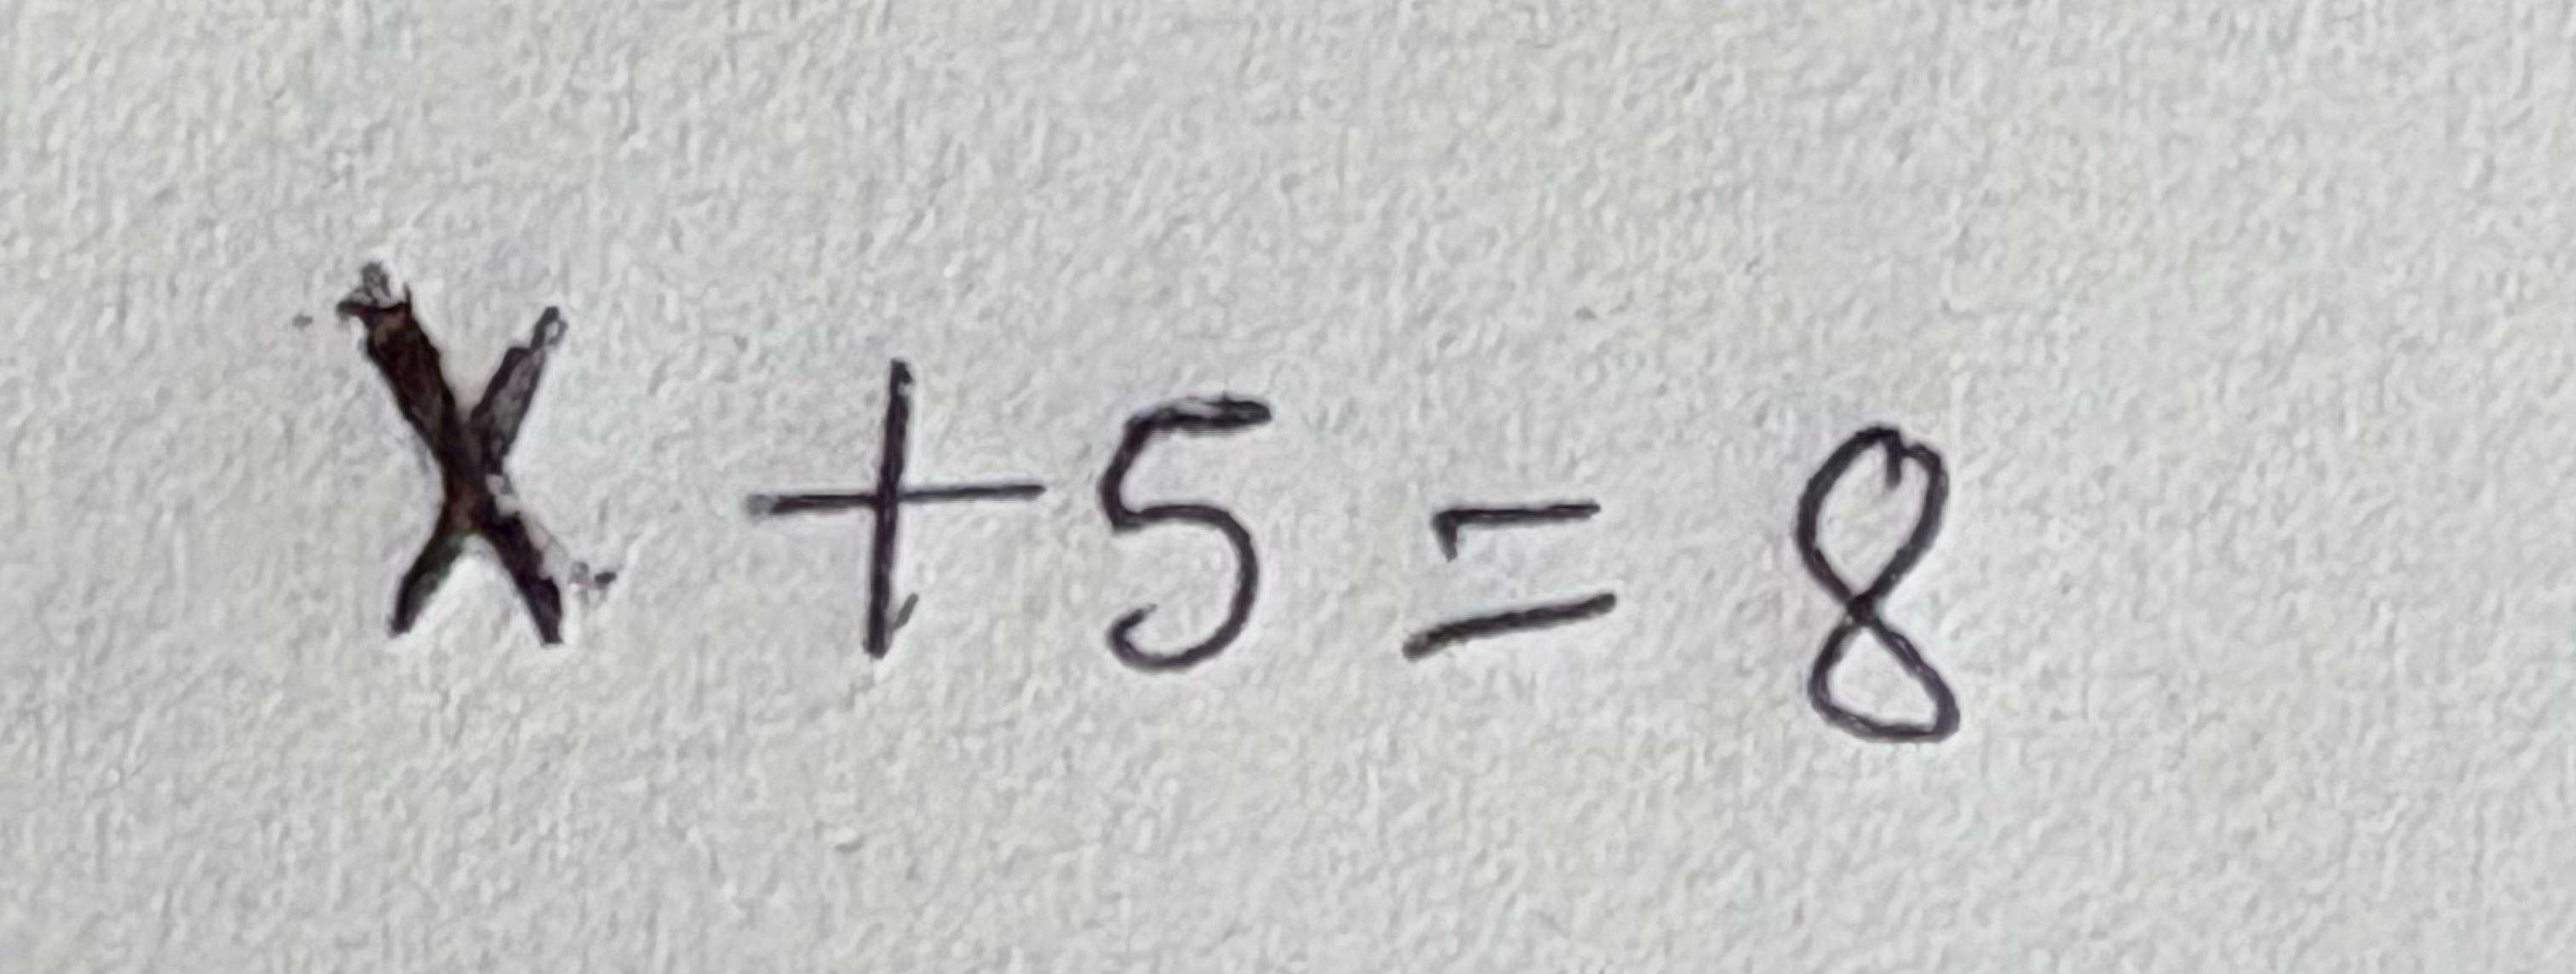 X + 5 = 8